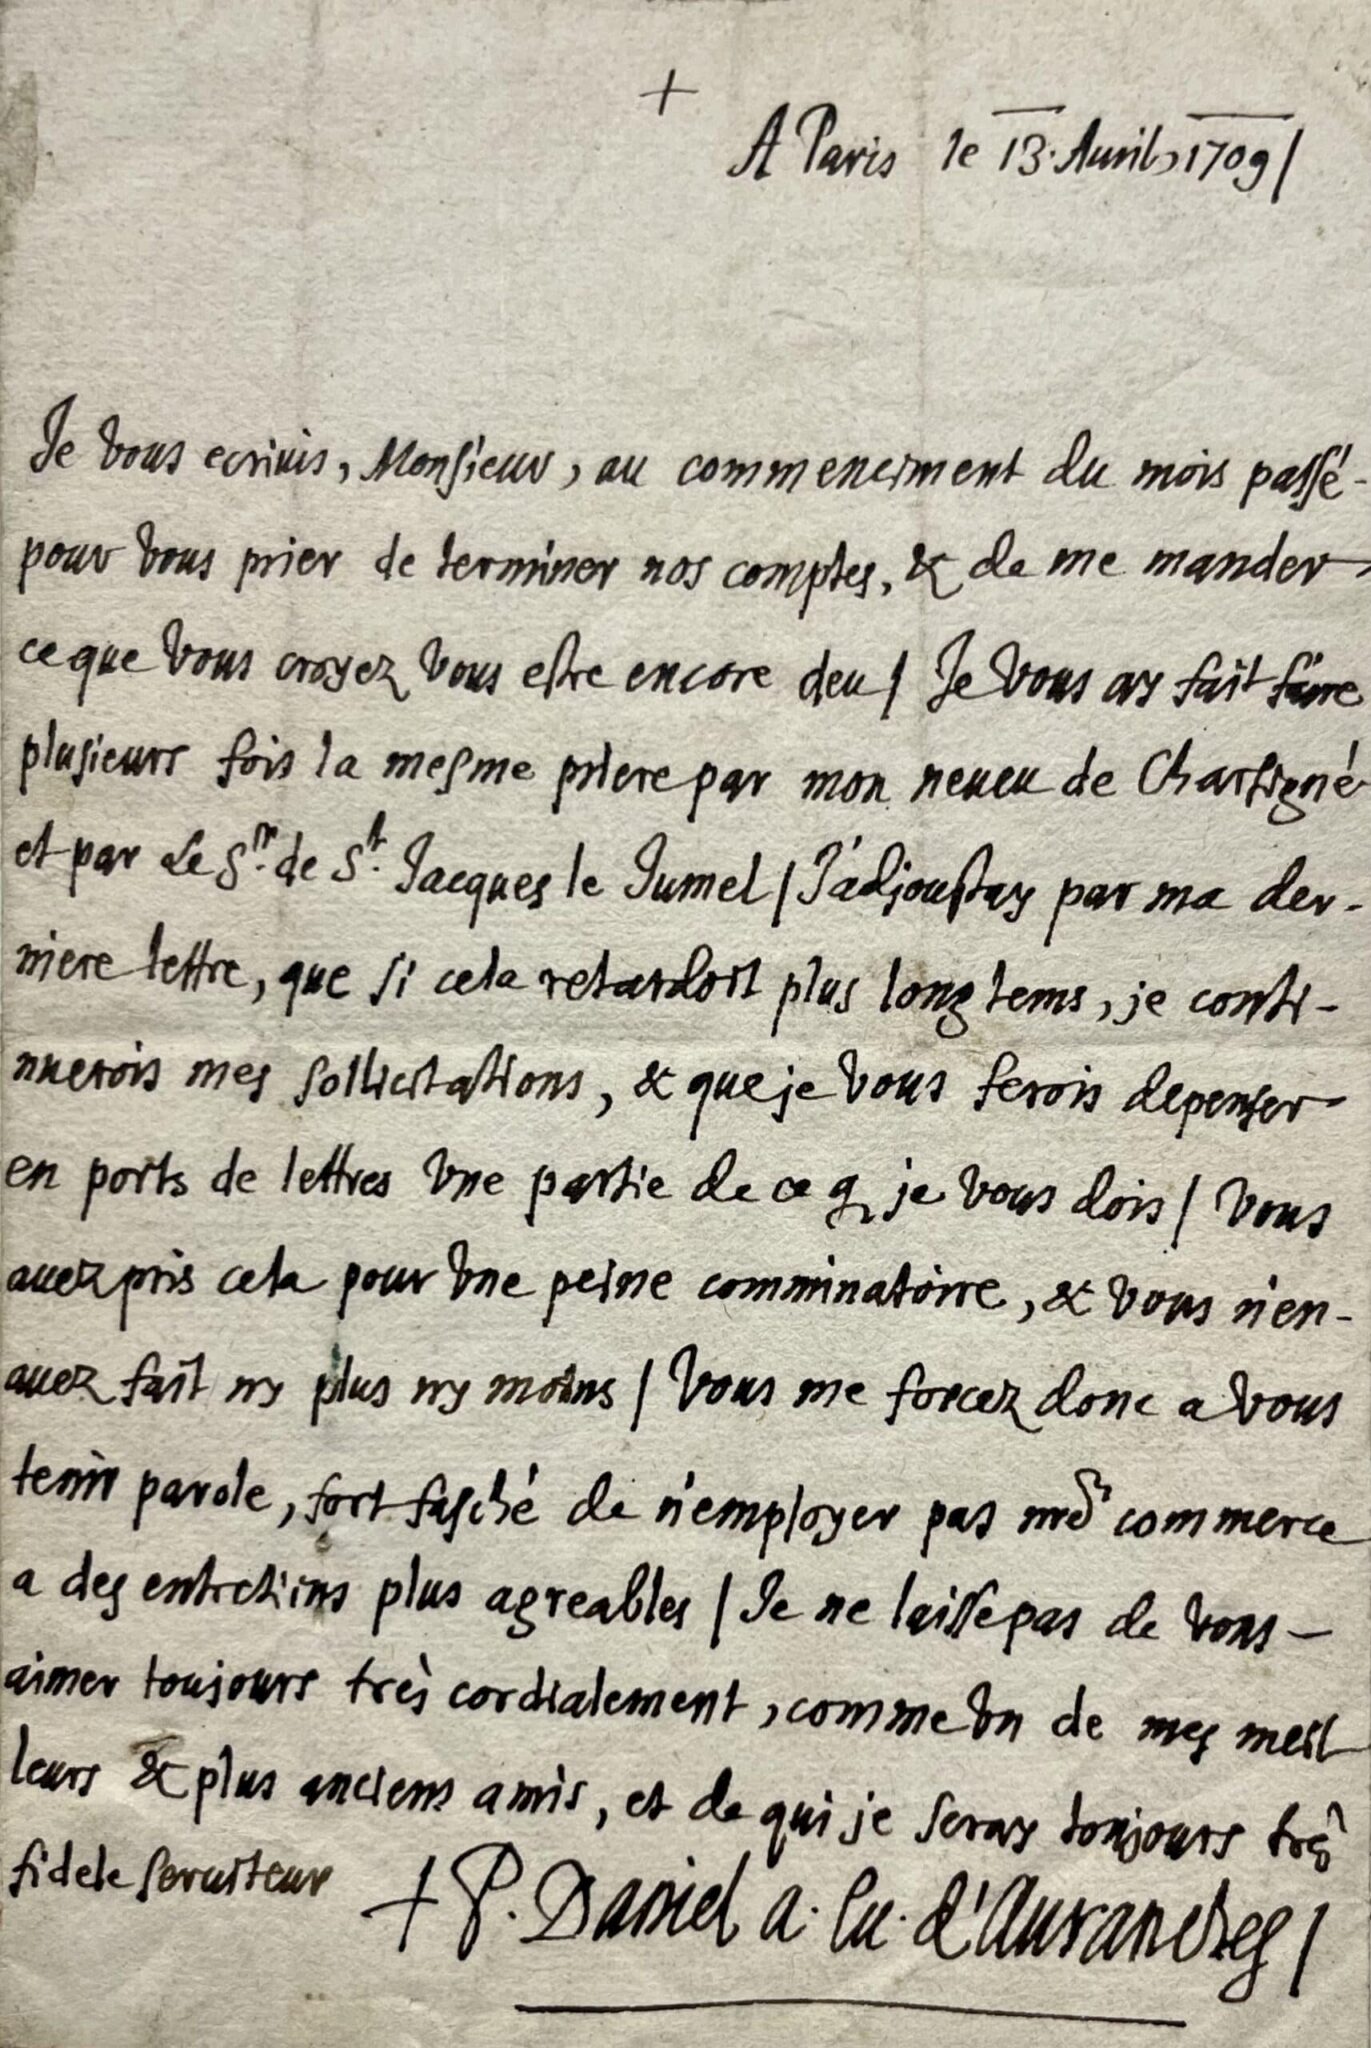 +
A Paris le 13. Auril, 1709/
Je vous ecriuis, Monsieur, au commencement du mois passé-
pour vous prier de terminer nos comptes, & de me mander
ce que vous croyez vous estre encore deu/ Je vous ay fait faire
plusieurs fois la mesme priere par mon neueu de Charsigné
et par Le Sr. de St. Jacques le Jumel/ J'adjoustay par ma der-
niere lettre, que si cela retardoit plus longtems, je conti-
nuerois mes sollicitations, & que je vous ferois depenser
en ports de lettres vne partie de ce q je vous dois/ Vous
auez pris cela pour vne peine comminatoire, & vous n'en-
auez fait ny plus ny moins/ Vous me forcez donc a vous
tenir parole, fort fasché de n'employer pas nre commerce
a des entretiens plus agreables/ Je ne laisse pas de vous-
aimer toujours très cordialement, comme vn de mes meil
leurs & plus anciens amis, et de qui je seray toujours très
fidele seruiteur + P. Daniel a. Eu. d'Auranches/